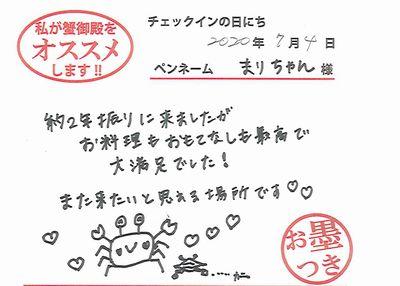 私が蟹御殿を
オススメ
します!!
チェックインの日にち
2020年7月4日
ペンネーム まりちゃん 様
約2年振りに来ましたが
お料理もおもてなしも最高で
大満足でした!
また来たいと思える場所です♡♡
お墨
つき